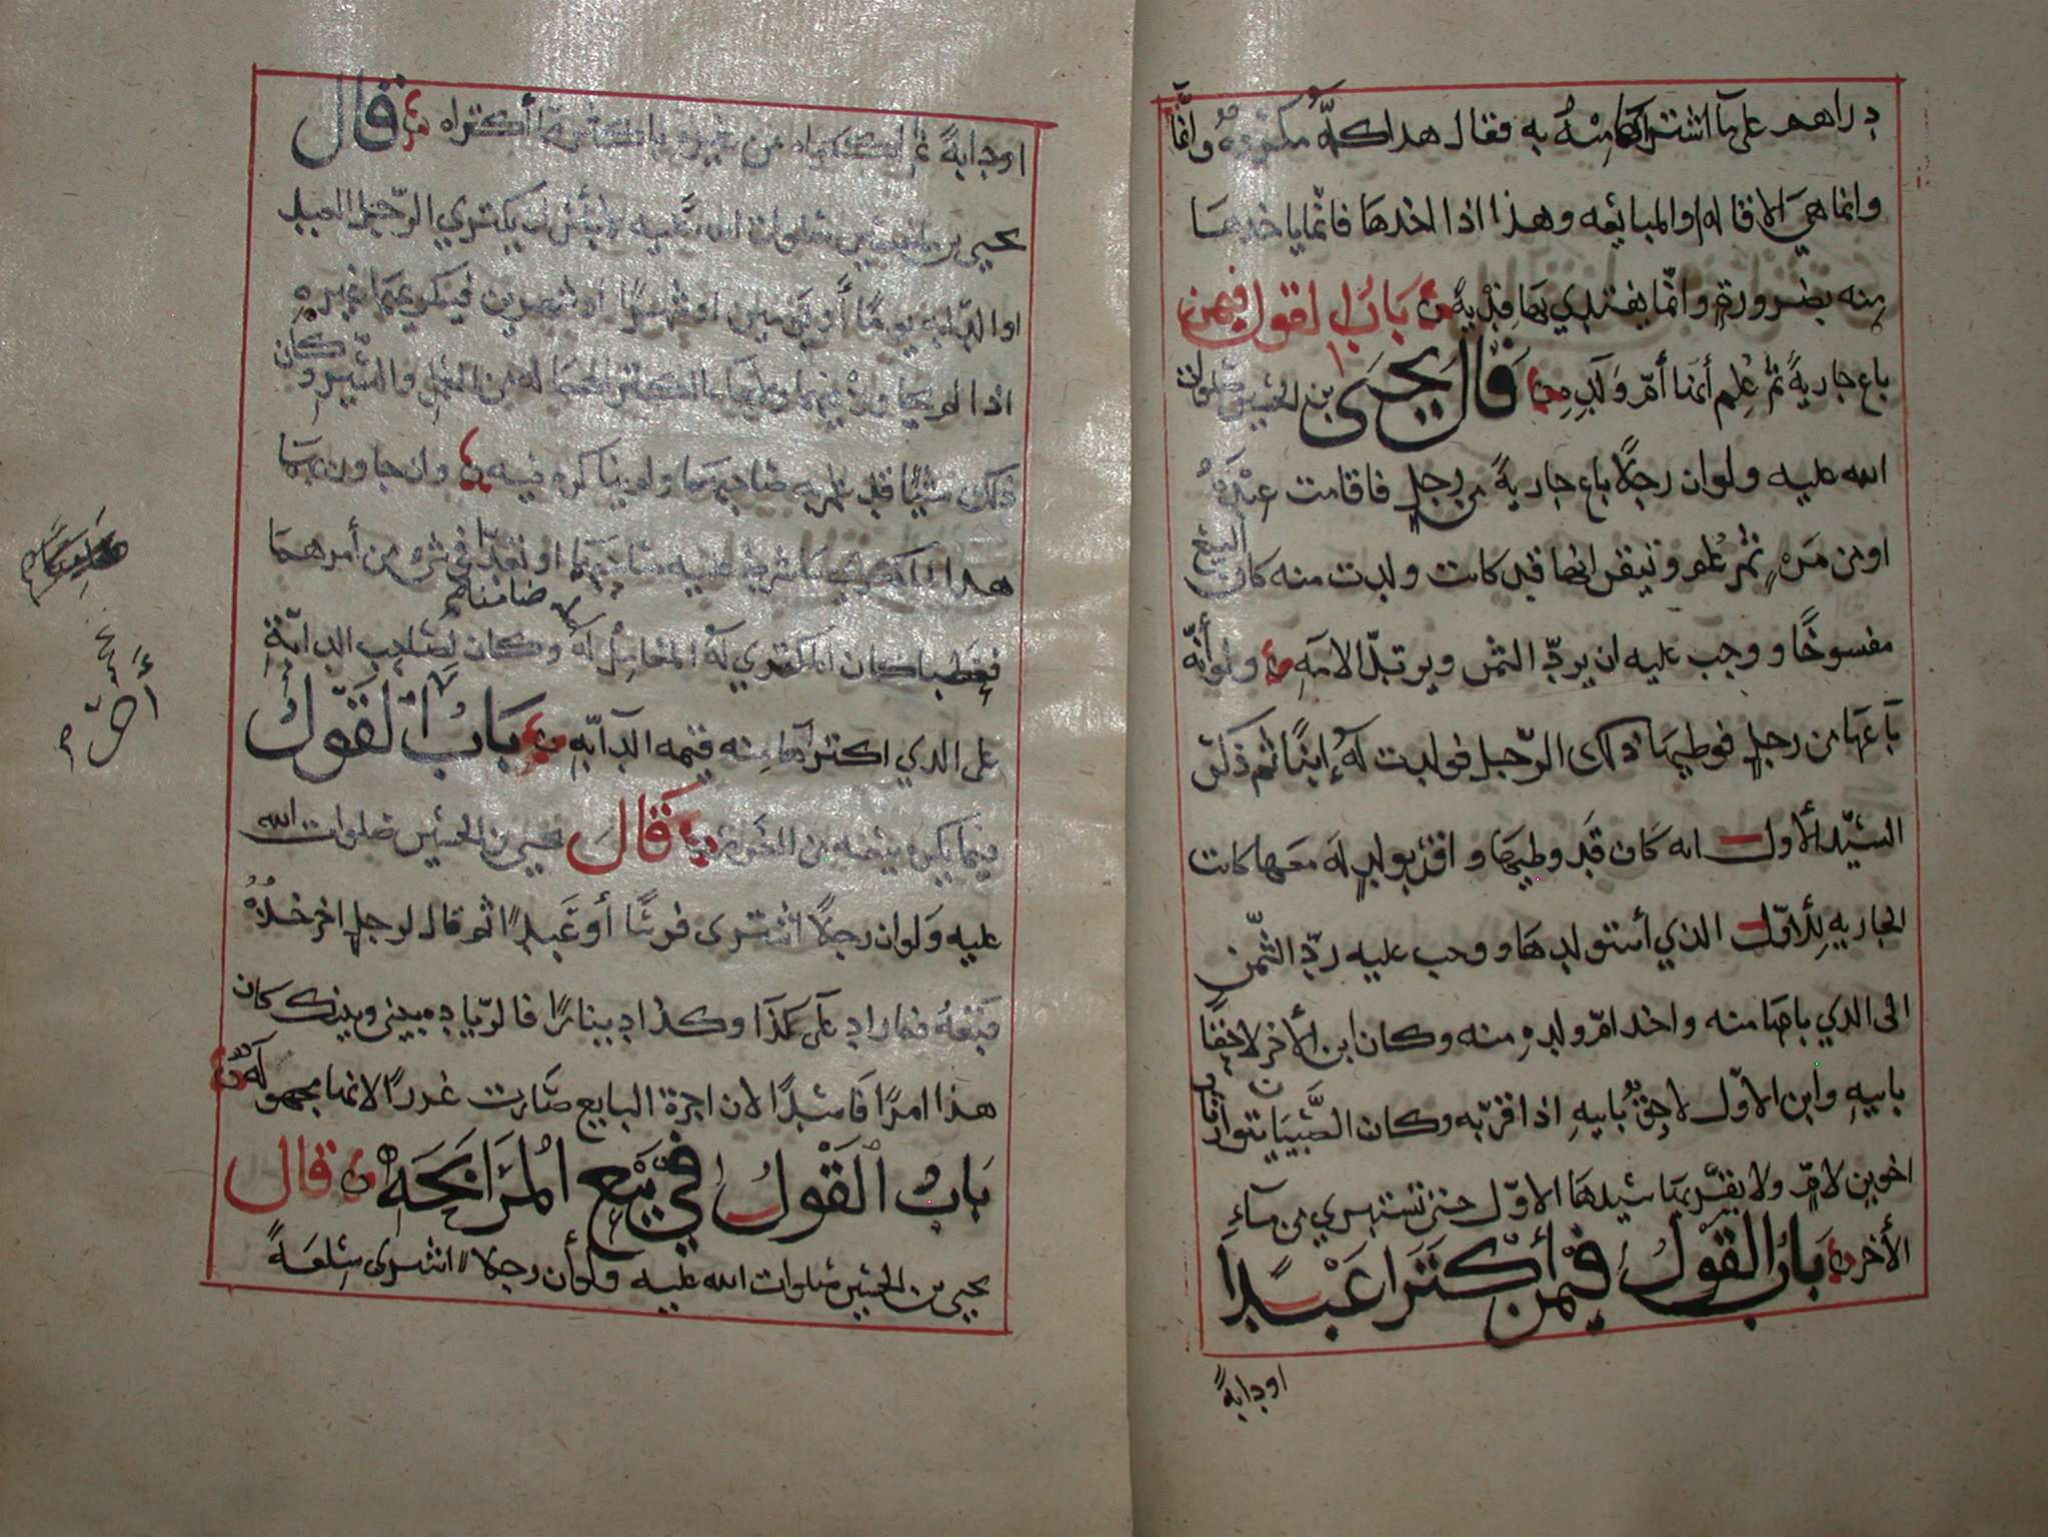 دراهم على ما اشتراها منه به فقال هدا كله مكروه وانما
وانما هي الاقاله او المبايعه وهذا اذا اخدها فانما ياخدها
منه بضرورة وانما يفتدي بها فدية باب القول فيمن
باع جارية ثم علم أنها أم ولده قال يحيى بن الحسين صلوات
الله عليه ولو ان رجلا باع جارية من رجل فاقامت عنده
او من مره ثم علم وتيقن انها قد كانت ولدت منه كان البيع
مفسوخا ووجب عليه ان يرد الثمن ويرتد الامه ولو أنه
باعها من رجل فوطيها ذلك الرجل فولدت له إبنا ثم ذكر
السيد الأول انه كان قد وطيها واقر بولد له معها كانت
الجاريه للأول الذي أستولدها ووجب عليه رد الثمن
الى الدي باعها منه واخد ام ولده منه وكان ابن الأخر لاحقا
بابيه وابن الاول لاحق بابيه اذا اقر به وكان الصبيان
اخوين لام ولا يقربها سيدها الاول حتى تستبري من مآء
الأخر باب القول فيمن أكترا عبدا
اودابة
اودابة ثم اكتراه من غيره باكثر مما أكتراه قال
يحيى بن الحسين صلوات الله عليه لا بأس ان يكتري الرجل العبد
او الدابه يوما أو يومين او شهرا او شهرين فيكريهما غيره
اذا لم يجاوز بهما المكتري لهما من العمل والسير وكان
ذلك شيا قد علم به صاحبهما ولم يناكره فيه وان جاوز بهما
هدا المكتري ما شرط عليه صاحبهما او تعدا في شي من أمرهما
فعطبا كان المكتري له المتعامل له ضامنا لهما وكان لصاحب الدابة
على الدي اكتراها منه قيمه الدآبه باب القول
فيما يكره بيعه من الغرر قال يحيى بن الحسين صلوات الله
عليه ولو ان رجلا اشترى فرسا أو عبدا ثم قال لرجل اخر خده
فبعه فما زاد على كذا وكذا دينارا فالزياده بيني وبينك كان
هذا امرا فاسدا لان اجرة البايع صارت غررا لانها مجهولة
باب القول في بيع المرابحة قال
يحيى بن الحسين صلوات الله عليه ولو أن رجلا اشترى سلعة